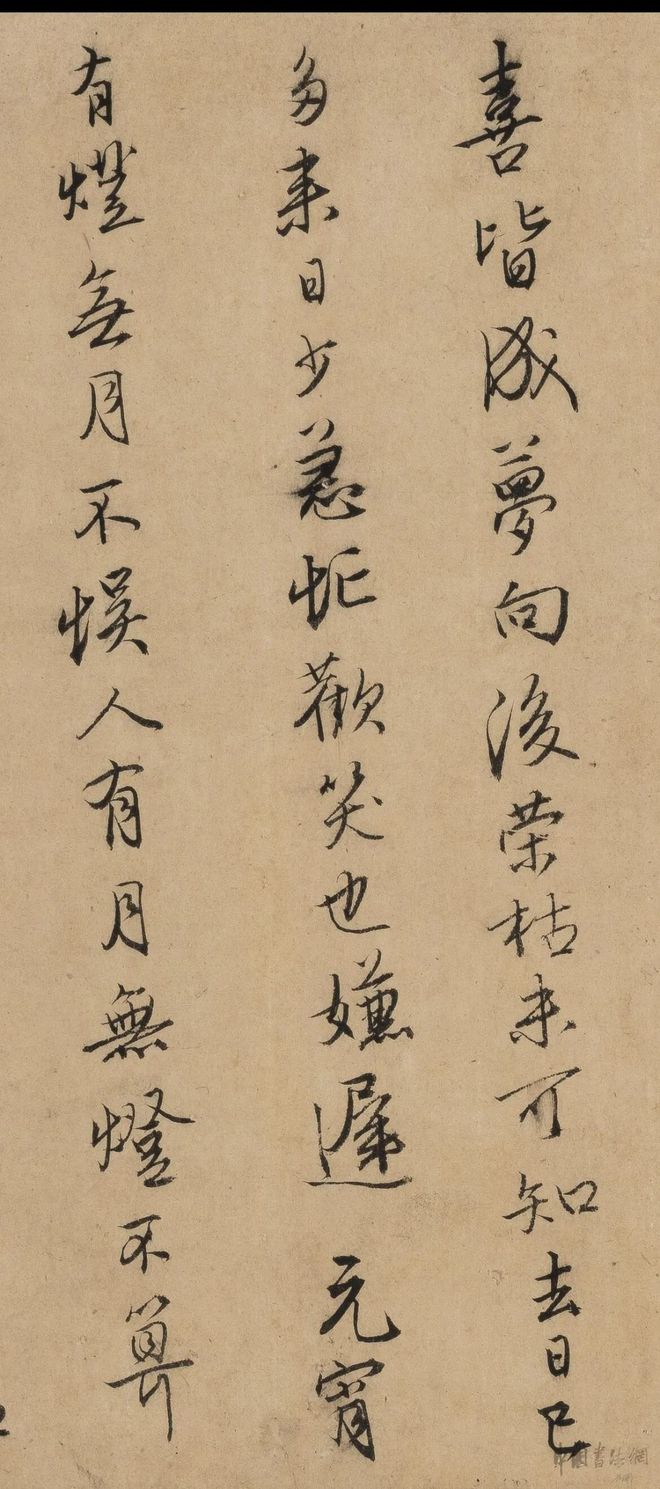 喜皆成夢向後荣枯未可知去日已
多来日少急忙歡笑也嫌遲元宵
有燈無月不悮人有月無燈不算
中國書法網